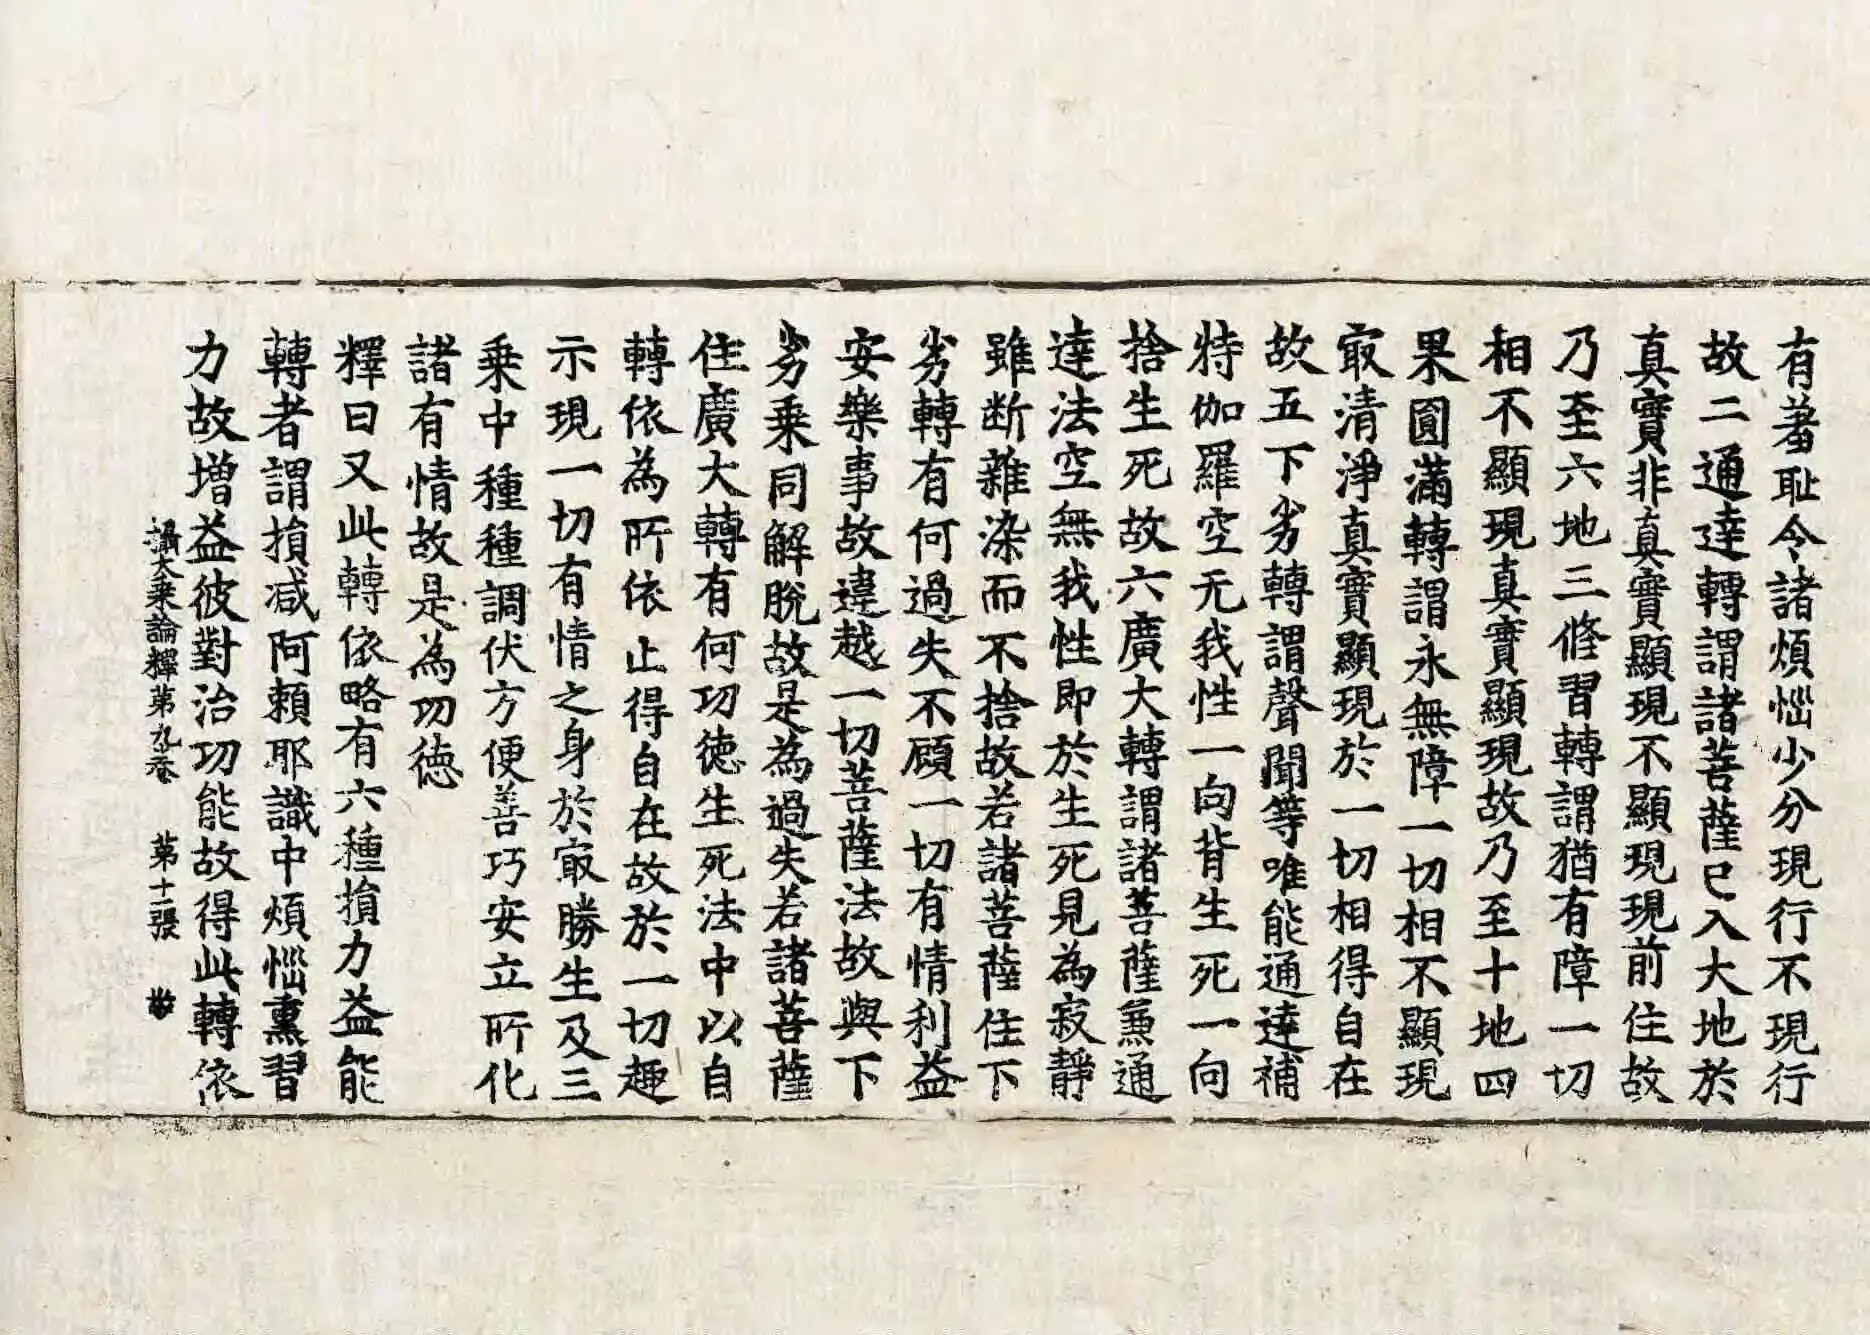 有羞耻令諸煩惱少分現行不現行
故二通達轉謂諸菩薩已入大地於
真實非真實顯現不顯現現前住故
乃至六地三修習轉謂猶有障一切
相不顯現真實顯現故乃至十地四
果圓滿轉謂永無障一切相不顯現
㝡清淨真實顯現於一切相得自在
故五下劣轉謂聲聞等唯能通達補
特伽羅空无我性一向背生死一向
捨生死故六廣大轉謂諸菩薩兼通
達法空無我性即於生死見為寂靜
雖斷雜染而不捨故若諸菩薩住下
劣轉有何過失不顧一切有情利益
安樂事故違越一切菩薩法故與下
劣乗同解脫故是為過失若諸菩薩
住廣大轉有何功德生死法中以自
轉依為所依止得自在故於一切趣
示現一切有情之身於㝡勝生及三
乗中種種調伏方便善巧安立所化
諸有情故是為功德
釋曰又此轉依略有六種損力益能
轉者謂損減阿賴耶識中煩惱熏習
力故增益彼對治功能故得此轉依
攝大乗論釋第九卷 第十二張